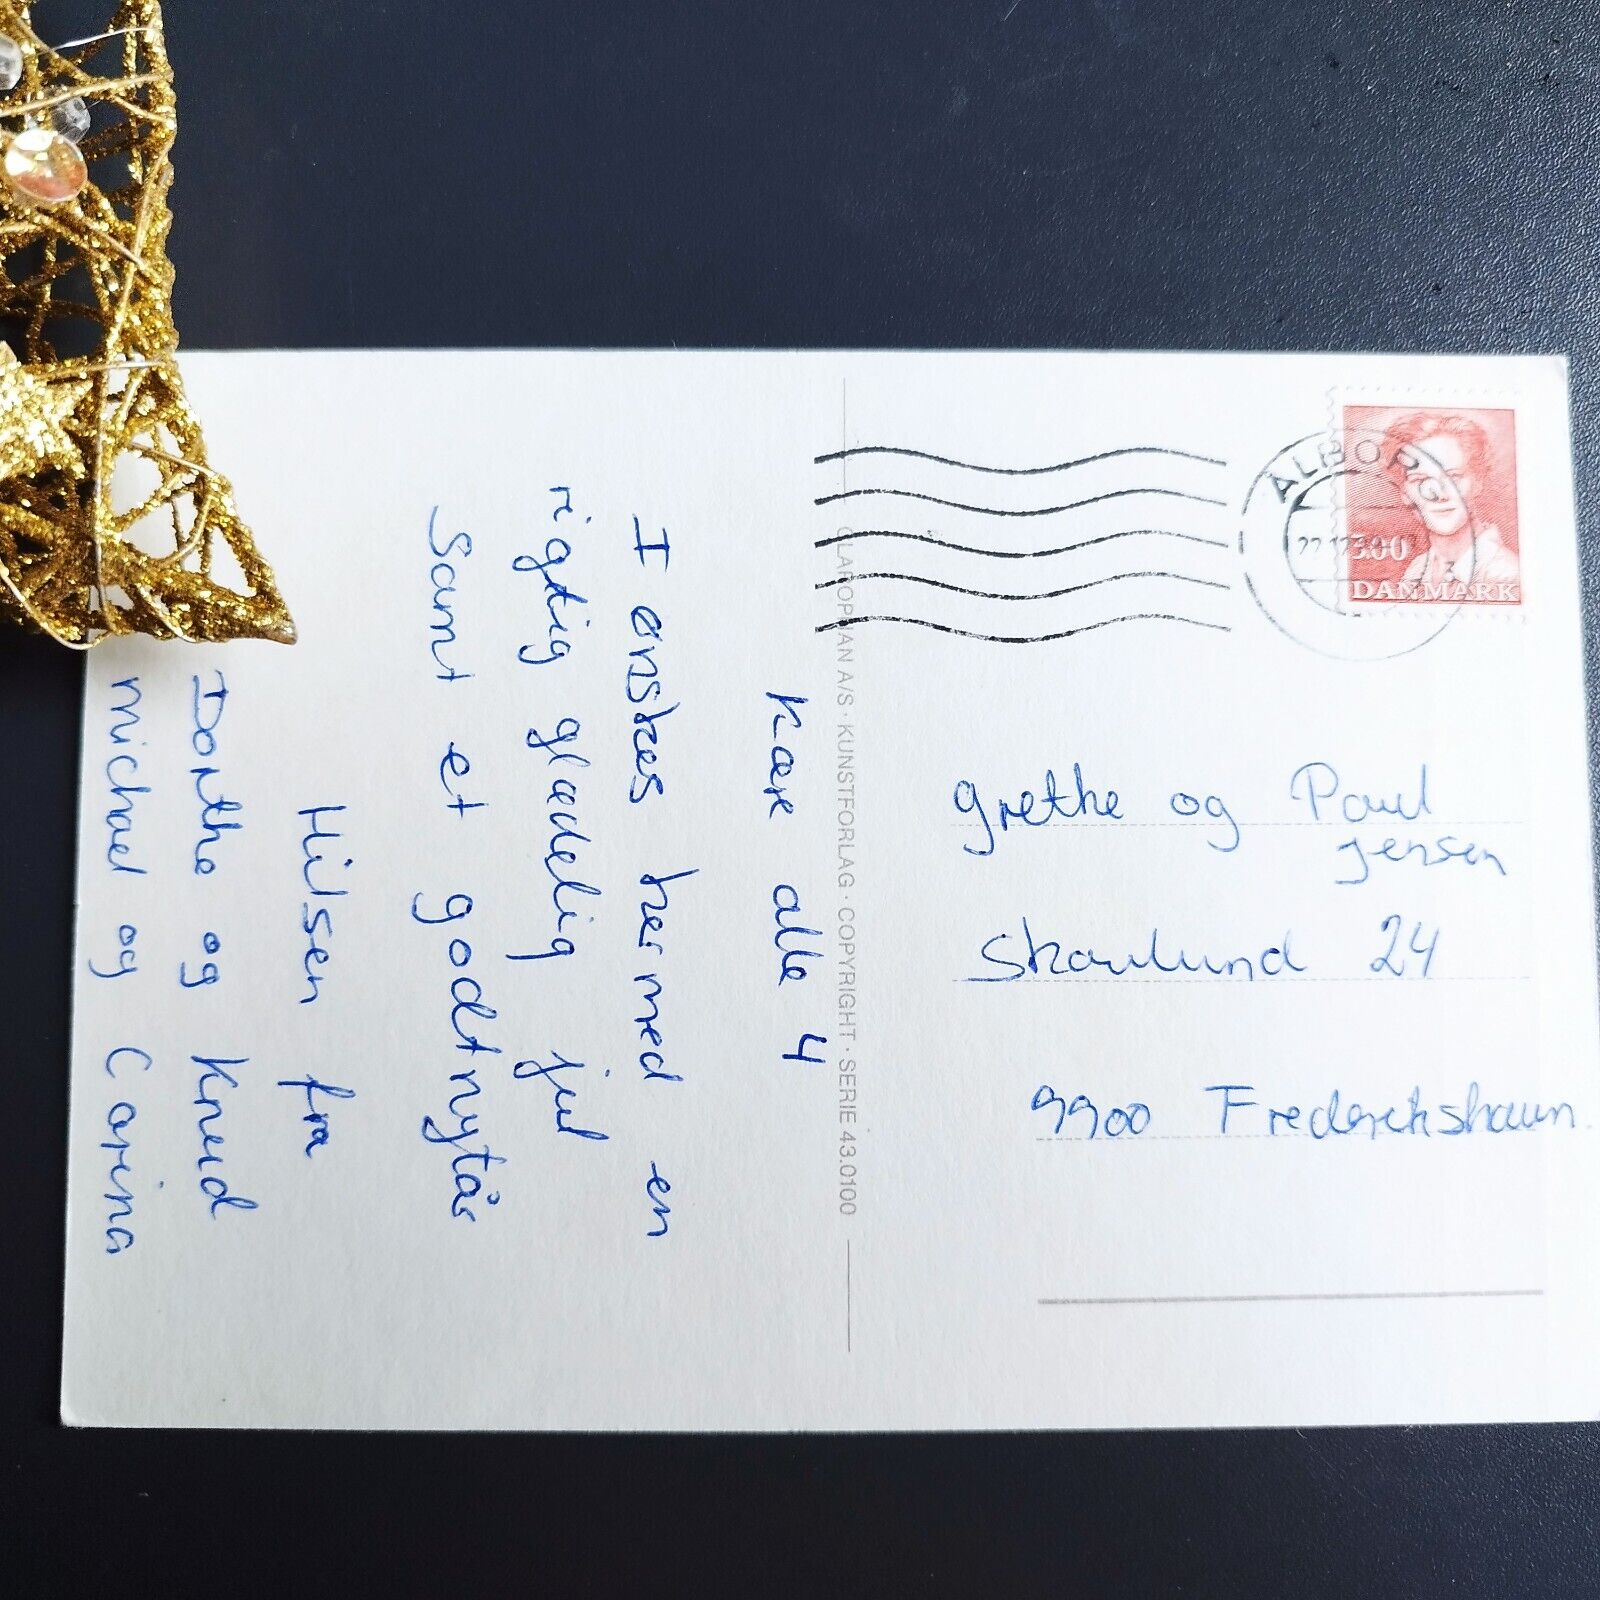 Kære alle 4
I ønskes hermed en
rigtig glædelig jul
Samt et godt nytår
Hilsen fra
Dorthe og Knud
michael og Carina
CLAROPHAN A/S · KUNSTFORLAG · COPYRIGHT · SERIE 43.0100
ÅLBORG
22.12
3.00
DANMARK
Grethe og Poul
Jensen
Skovlund 24
9900 Frederikshavn.